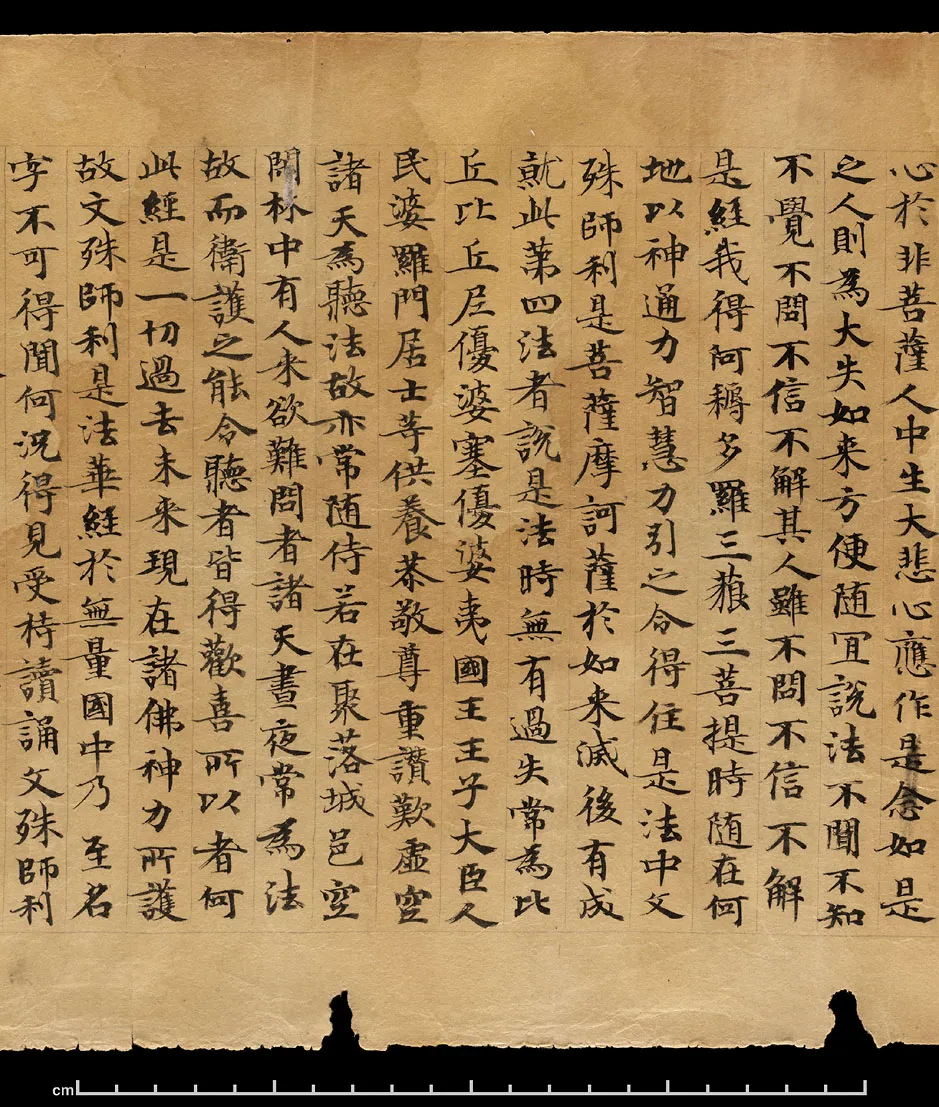 心於非菩薩人中生大悲心應作是念如是
之人則為大失如来方便随冝說法不聞不知
不覺不問不信不解其人雖不問不信不解
是經我得阿耨多羅三藐三菩提時随在何
地以神通力智慧力引之令得住是法中文
殊師利是菩薩摩訶薩於如来滅後有成
就此苐四法者說是法時無有過失常為比
丘比丘尼優婆塞優婆夷國王王子大臣人
民婆羅門居士等供養恭敬尊重讃歎虛空
諸天為聽法故亦常随侍若在聚落城邑空
閑林中有人来欲難問者諸天晝夜常為法
故而衛護之能令聽者皆得歡喜所以者何
此經是一切過去未来現在諸佛神力所護
故文殊師利是法華經於無量國中乃至名
字不可得聞何況得見受持讀誦文殊師利
cm